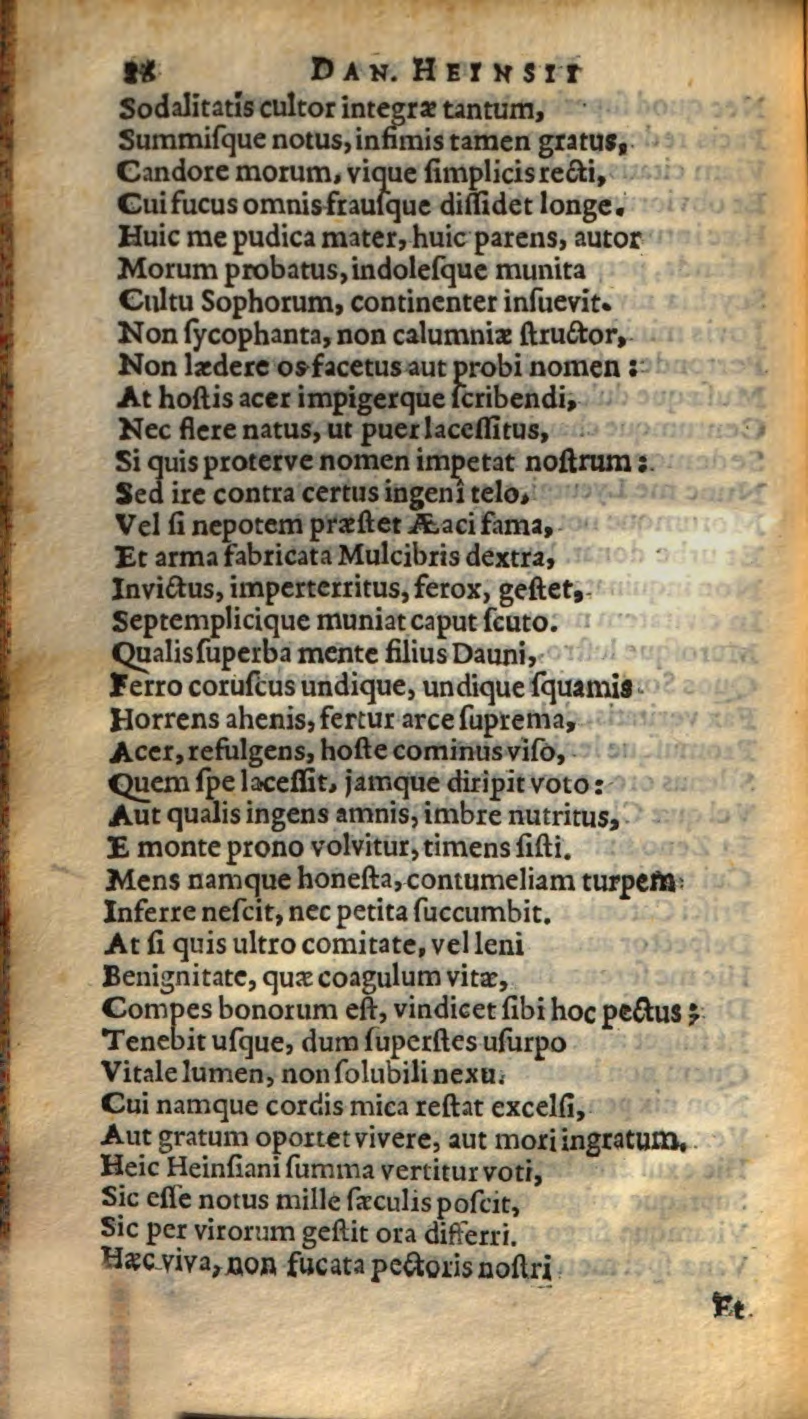 DAN. HEINSII
Sodalitatis cultor integræ tantum,
Summiſque notus, infimis tamen gratus,
Candore morum, vique ſimplicis recti,
Cui fucus omnis frauſque diſſidet longe.
Huic me pudica mater, huic parens, autor
Morum probatus, indoleſque munita
Cultu Sophorum, continenter inſuevit.
Non ſycophanta, non calumniæ ſtructor,
Non lædere os facetus aut probi nomen :
At hoſtis acer impigerque ſcribendi,
Nec flere natus, ut puer laceſſitus,
Si quis proterve nomen impetat noſtrum ;
Sed ire contra certus ingenî telo,
Vel ſi nepotem præſtet Æaci fama,
Et arma fabricata Mulcibris dextra,
Invictus, imperterritus, ferox, geſtet,
Septemplicique muniat caput ſcuto.
Qualis ſuperba mente filius Dauni,
Ferro coruſcus undique, undique ſquamis
Horrens ahenis, fertur arce ſuprema,
Acer, refulgens, hoſte cominus viſo,
Quem ſpe laceſſit, jamque diripit voto :
Aut qualis ingens amnis, imbre nutritus,
E monte prono volvitur, timens ſiſti.
Mens namque honeſta, contumeliam turpem
Inferre neſcit, nec petita ſuccumbit.
At ſi quis ultro comitate, vel leni
Benignitate, quæ coagulum vitæ,
Compes bonorum eſt, vindicet ſibi hoc pectus ;
Tenebit uſque, dum ſuperſtes uſurpo
Vitale lumen, non ſolubili nexu.
Cui namque cordis mica reſtat excelſi,
Aut gratum oportet vivere, aut mori ingratum.
Heic Heinſiani ſumma vertitur voti,
Sic eſſe notus mille ſæculis poſcit,
Sic per virorum geſtit ora differri.
Hæc viva, non fucata pectoris noſtri
Et